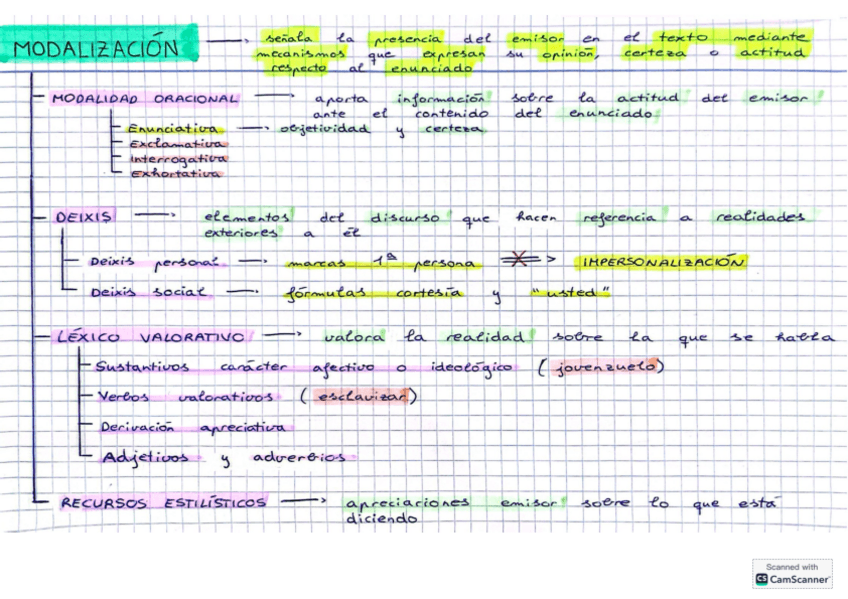 MODALIZACIÓN → señala la presencia del emisor en el texto mediante
mecanismos que expresan su opinión, certeza o actitud
respecto al enunciado
MODALIDAD ORACIONAL → aporta información sobre la actitud del emisor
ante el contenido del enunciado
Enunciativa → objetividad y certeza
Exclamativa
Interrogativa
Exhortativa
DEIXIS → elementos del discurso que hacen referencia a realidades
exteriores a él
Deixis personal → marcas 1ª persona IMPERSONALIZACIÓN
Deixis social → fórmulas cortesía y "usted"
LÉXICO VALORATIVO → valora la realidad sobre la que se habla
Sustantivos carácter afectivo o ideológico (jovenzuelo)
Verbos valorativos (esclavizar)
Derivación apreciativa
Adjetivos y adverbios
RECURSOS ESTILÍSTICOS → apreciariones emisor sobre lo que está
diciendo
Scanned with
CS CamScanner